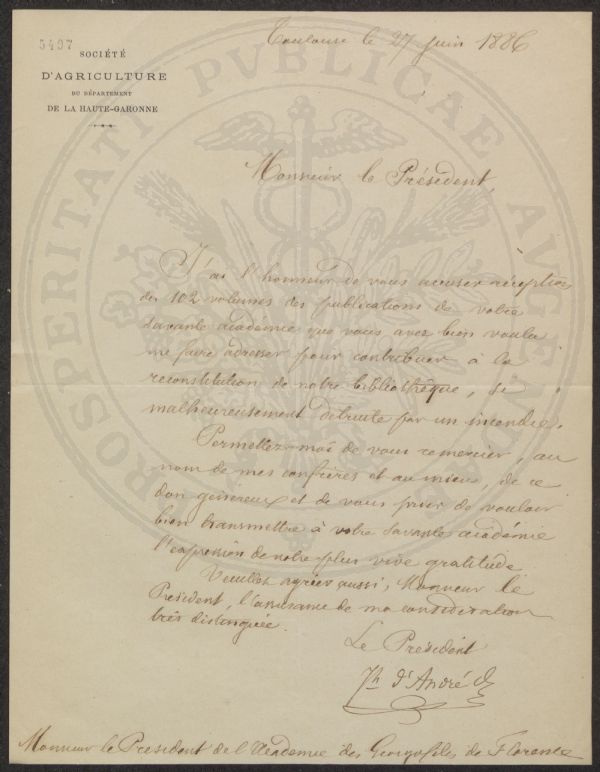 5497
SOCIÉTÉ
D'AGRICULTURE
DU DÉPARTEMENT
DE LA HAUTE-GARONNE
Toulouse le 27 juin 1886
Monsieur le Président,
J'ai l'honneur de vous accuser réception
des 102 volumes des publications de votre
savante académie que vous avez bien voulu
me faire adresser pour contribuer à la
reconstitution de notre bibliothèque, si
malheureusement détruite par un incendie.
Permettez-moi de vous remercier, au
nom de mes confrères et au mien, de ce
don généreux et de vous prier de vouloir
bien transmettre à votre savante académie
l'expression de notre plus vive gratitude
Veuillez agréer aussi, Monsieur le
Président, l'assurance de ma considération
très distinguée.
Le Président
d'André
Monsieur le Président de l'Académie des Georgofiles de Florence
PROSPERITATI PVBLICAE AVGENDAE